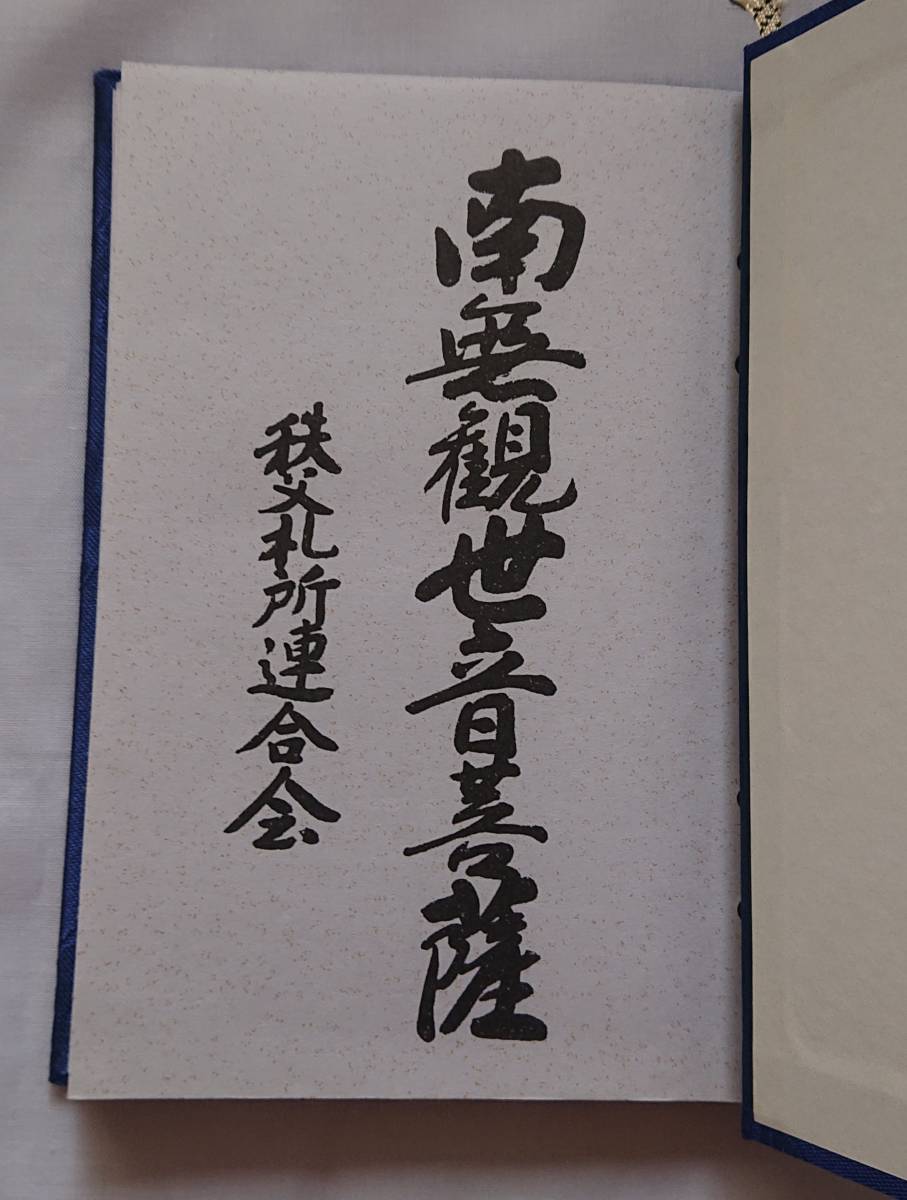 南無観世音菩薩
秩父札所連合会